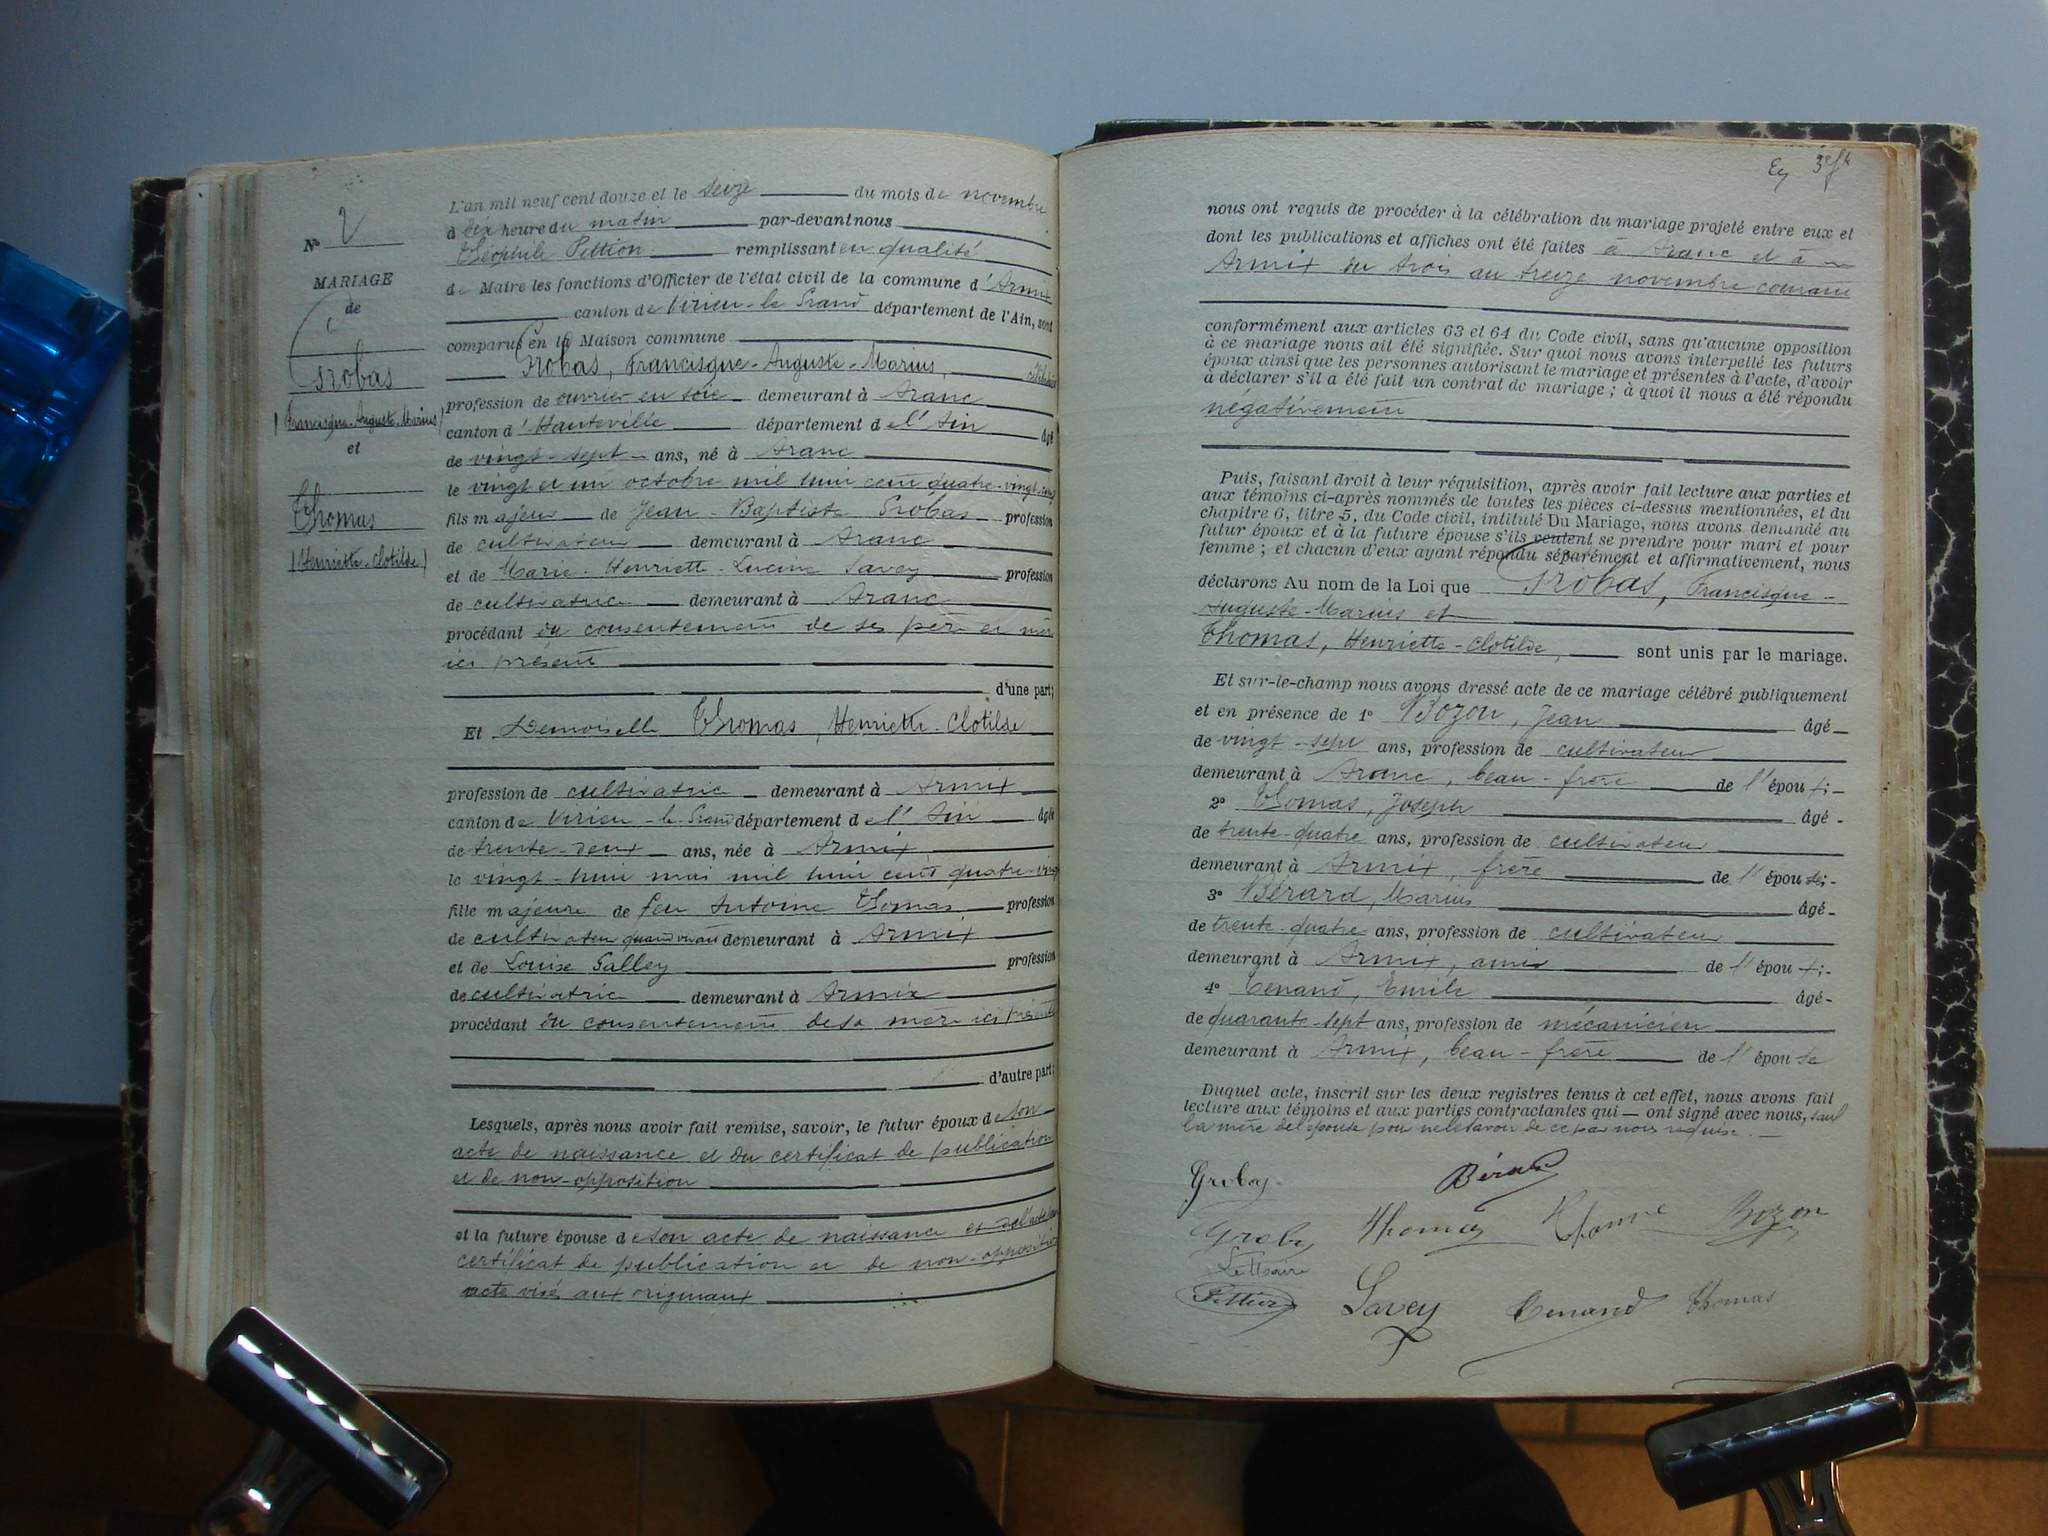 N° 2
MARIAGE
de
Grobas
(Francisque-Auguste-Marius)
et
Thomas
(Henriette-Clotilde)
L'an mil neuf cent douze et le seize du mois de novembre
à dix heure du matin par-devant nous
Théophile Pettion remplissant en qualité
de Maire les fonctions d'Officier de l'état civil de la commune d'Armix
canton de Virieu-le-Grand département de l'Ain, sont
comparus en la Maison commune
Grobas, Francisque-Auguste-Marius,
profession de ouvrier en soie demeurant à Aranc
canton d'Hauteville département de l'Ain âgé
de vingt-sept ans, né à Aranc
le vingt et un octobre mil huit cent quatre-vingt-cinq
fils majeur de Jean-Baptiste Grobas profession
de cultivateur demeurant à Aranc
et de Marie-Henriette-Lucine Savey profession
de cultivatrice demeurant à Aranc
procédant du consentement de ses père et mère
ici présent
d'une part;
Et Demoiselle Thomas, Henriette-Clotilde
profession de cultivatrice demeurant à Armix
canton de Virieu-le-Grand département de l'Ain âgée
de trente-deux ans, née à Armix
le vingt-huit mai mil huit cent quatre-vingt
fille majeure de feu Antoine Thomas profession
de cultivateur quand vivait demeurant à Armix
et de Louise Galley profession
de cultivatrice demeurant à Armix
procédant du consentement de sa mère ici présente
d'autre part;
Lesquels, après nous avoir fait remise, savoir, le futur époux de son
acte de naissance et du certificat de publication
et de non-opposition
et la future épouse de son acte de naissance et
certificat de publication et de non-opposition
acte visé aux originaux
3e
nous ont requis de procéder à la célébration du mariage projeté entre eux et
dont les publications et affiches ont été faites à Aranc et à
Armix du trois au treize novembre courant
conformément aux articles 63 et 64 du Code civil, sans qu'aucune opposition
à ce mariage nous ait été signifiée. Sur quoi nous avons interpellé les futurs
époux ainsi que les personnes autorisant le mariage et présentes à l'acte, d'avoir
à déclarer s'il a été fait un contrat de mariage; à quoi il nous a été répondu
négativement
Puis, faisant droit à leur réquisition, après avoir fait lecture aux parties et
aux témoins ci-après nommés de toutes les pièces ci-dessus mentionnées, et du
chapitre 6, titre 5, du Code civil, intitulé Du Mariage, nous avons demandé au
futur époux et à la future épouse s'ils veulent se prendre pour mari et pour
femme; et chacun d'eux ayant répondu séparément et affirmativement, nous
déclarons Au nom de la Loi que Grobas, Francisque-
Auguste-Marius et
Thomas, Henriette-Clotilde, sont unis par le mariage.
Et sur-le-champ nous avons dressé acte de ce mariage célébré publiquement
et en présence de 1° Bozon, Jean âgé
de vingt-sept ans, profession de cultivateur
demeurant à Aranc, beau-frère de l'époux;
2° Thomas, Joseph âgé
de trente-quatre ans, profession de cultivateur
demeurant à Armix, frère de l'épouse;
3° Bérard, Marius âgé
de trente-quatre ans, profession de cultivateur
demeurant à Armix, ami de l'époux;
4° Tenand, Emile âgé
de quarante-sept ans, profession de mécanicien
demeurant à Armix, beau-frère de l'épouse
Duquel acte, inscrit sur les deux registres tenus à cet effet, nous avons fait
lecture aux témoins et aux parties contractantes qui ont signé avec nous, sauf
la mère de l'épouse pour ne le savoir de ce par nous requise.
Grobas
Bérard
Thomas
Bozon
Le Maire
Pettion
Savey
Tenand
Thomas